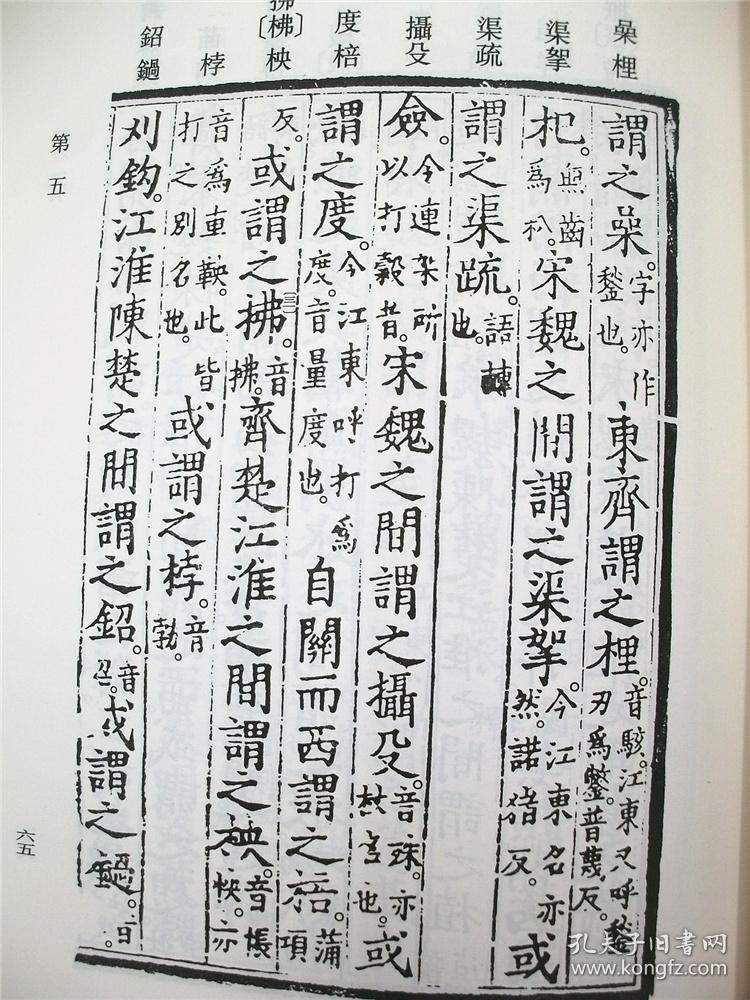 㮂梩
渠挐
渠疏
攝殳
度棓
拂〔柫〕柍
桲
鉊鐹
謂之㮂。字亦作鍫也。東齊謂之梩。音駭。江東又呼鍫刃為鐅。普蔑反。
杷。無齒為朳。宋魏之間謂之渠挐。今江東名亦然。諾猪反。或
謂之渠疏。語轉也。
僉。今連架所以打穀者。宋魏之間謂之攝殳。音殊。亦杖名也。或
謂之度。今江東呼打為度。音量度也。自關而西謂之棓。蒲項
反。或謂之拂。〔三〕音拂。齊楚江淮之間謂之柍。音悵怏。亦
音為車鞅。此皆打之別名也。或謂之桲。音勃。
刈鉤。江淮陳楚之間謂之鉊。音召。或謂之鐹。音
第五
六五
孔夫子旧书网
www.kongfz.com